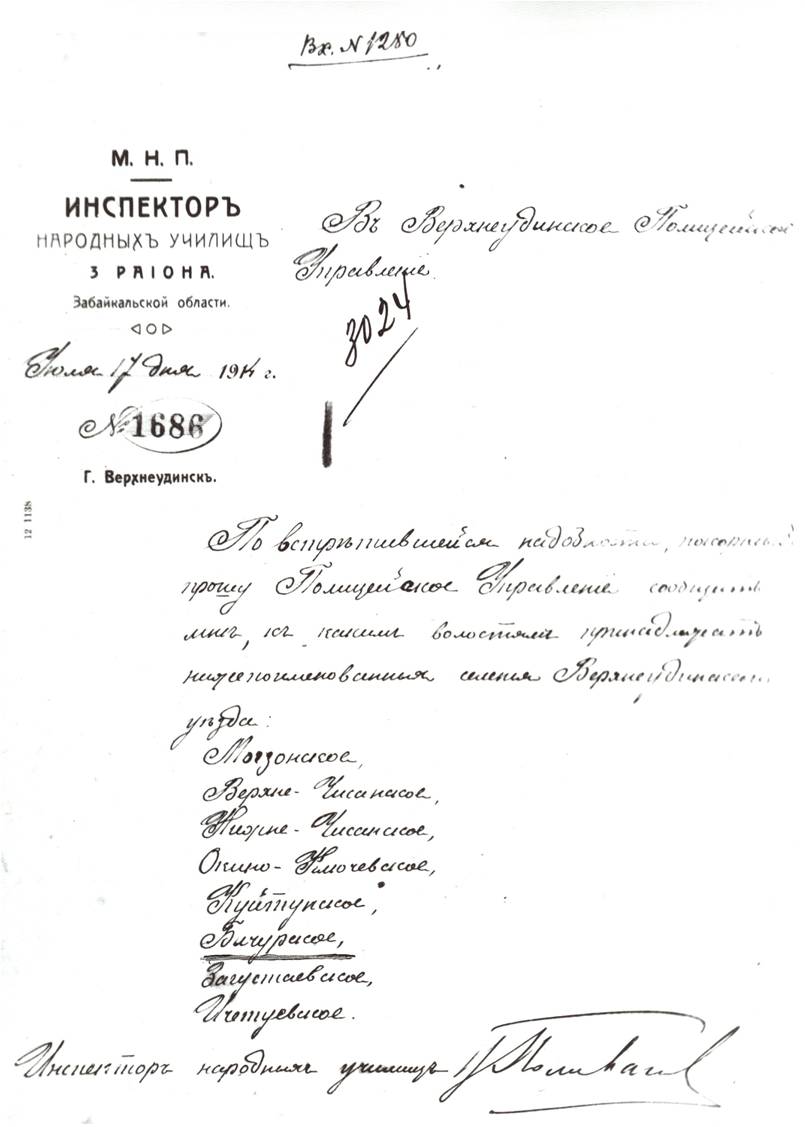 Вх. N 1280
М. Н. П.
ИНСПЕКТОРЪ
НАРОДНЫХЪ УЧИЛИЩЪ
3 РАІОНА.
Забайкальской области.
Іюля 17 дня 191 г.
№ 1686
Г. Верхнеудинскъ.
12 1138
Въ Верхнеудинское Полицейское
Управленіе.
3024
По встрѣтившейся надобности, покорнѣй
прошу Полицейское Управленіе сообщить
мнѣ, къ какимъ волостямъ принадлежатъ
нижепоименованныя селенія Верхнеудинскаго
уѣзда:
Могзонское,
Верхне-Чисанское,
Нижне-Чисанское,
Окино-Ключевское,
Куйтунское,
Бичурское,
Загустаевское,
Ичетуевское.
Инспекторъ народныхъ училищъ